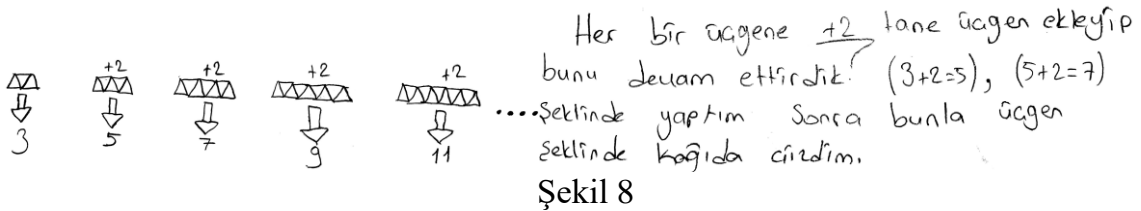 +2 +2 +2 +2
3 5 7 9 11 ....
Her bir üçgene +2 tane üçgen ekleyip
bunu devam ettirdik. (3+2=5), (5+2=7)
Şeklinde yaptım Sonra bunla üçgen
şeklinde kağıda çizdim.
Şekil 8